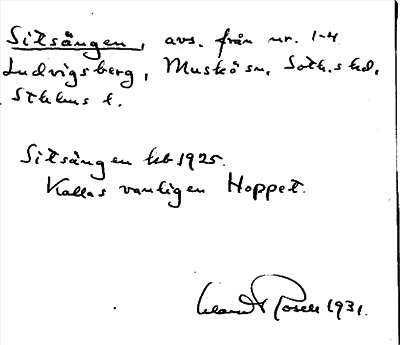 Sitsången, avs. från nr. 1-4
Ludvigsberg, Muskö sn, Soth. shd,
Sthlms l.
Sitsången kb 1925.
Kallas vanligen Hoppet.
Rosell 1931.